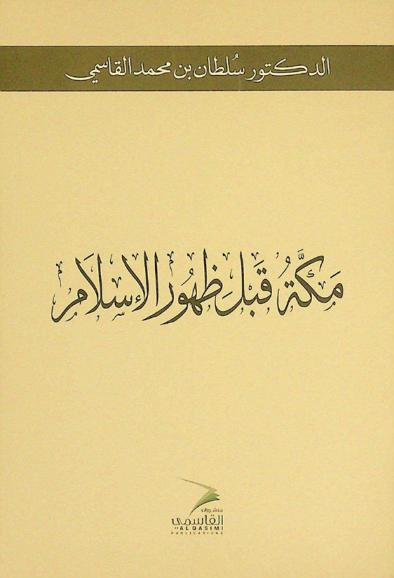 الدكتور سُلطان بن محمد القاسمي
مَكَّةُ قَبْلَ ظُهُورِ الإِسْلَامِ
منشورات
القاسمي
AL QASIMI
PUBLICATIONS